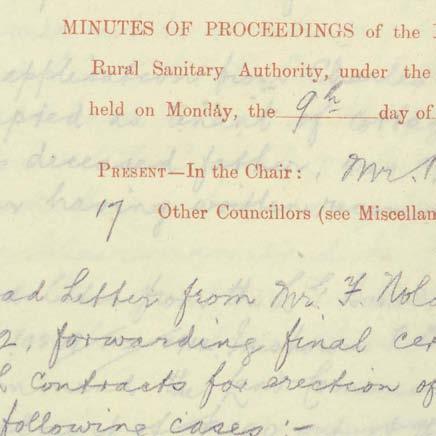 MINUTES OF PROCEEDINGS of the
Rural Sanitary Authority, under the
held on Monday, the 9th day of
PRESENT—In the Chair: Mr.
17 Other Councillors (see Miscellan
ad Letter from Mr. F. Nola
2. forwarding final cer
contracts for erection of
following cases:-